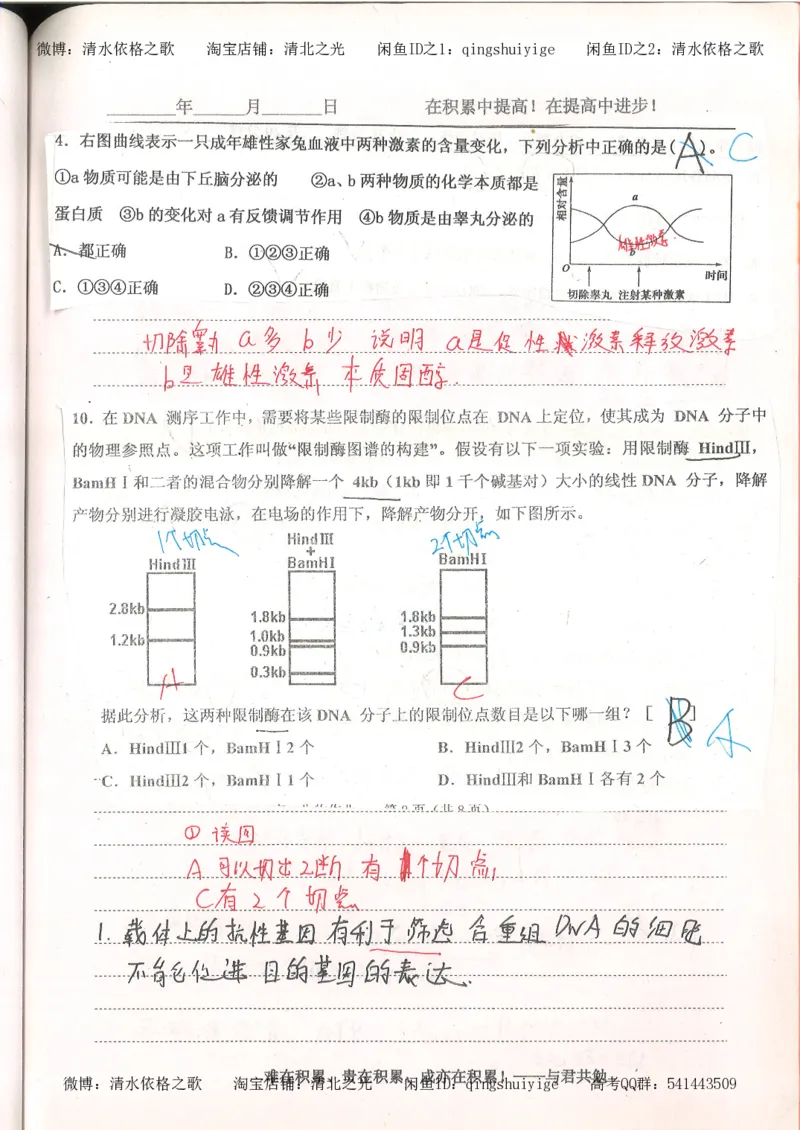 微博：清水依格之歌 淘宝店铺：清北之光 闲鱼ID之1：qingshuiyige 闲鱼ID之2：清水依格之歌
年 月 日 在积累中提高！在提高中进步！
4．右图曲线表示一只成年雄性家兔血液中两种激素的含量变化，下列分析中正确的是( A )。 C
①a物质可能是由下丘脑分泌的 ②a、b两种物质的化学本质都是
蛋白质 ③b的变化对a有反馈调节作用 ④b物质是由睾丸分泌的
A．都正确 B．①②③正确
C．①③④正确 D．②③④正确
相对含量
a
雄性激素
b
O
时间
切除睾丸 注射某种激素
切除睾丸 a多 b少 说明 a是促性 激素释放激素
b是 雄性激素 本质固醇．
10．在DNA 测序工作中，需要将某些限制酶的限制位点在 DNA上定位，使其成为 DNA 分子中
的物理参照点。这项工作叫做“限制酶图谱的构建”。假设有以下一项实验：用限制酶 HindⅢ，
BamHⅠ和二者的混合物分别降解一个 4kb（1kb即1千个碱基对）大小的线性DNA 分子，降解
产物分别进行凝胶电泳，在电场的作用下，降解产物分开，如下图所示。
1个切点
2个切点
HindⅢ
HindⅢ
+
BamHⅠ
BamHⅠ
2.8kb
1.2kb
1.8kb
1.0kb
0.9kb
0.3kb
1.8kb
1.3kb
0.9kb
A
C
据此分析，这两种限制酶在该DNA 分子上的限制位点数目是以下哪一组？[ B ] A
A．HindⅢ1个，BamHⅠ2个 B．HindⅢ2个，BamHⅠ3个
C．HindⅢ2个，BamHⅠ1个 D．HindⅢ和BamHⅠ各有2个
第2页（共8页）
① 读图
A 可以切出2断 有 1个切点，
C有 2个 切点
1. 载体上的抗性基因 有利于筛虑 含重组DNA的细胞
不能 目的基因的表达．
难在积累，贵在积累，成亦在积累！——与君共勉
微博：清水依格之歌 淘宝店铺：清北之光 闲鱼ID：qingshuiyige 高考QQ群：541443509